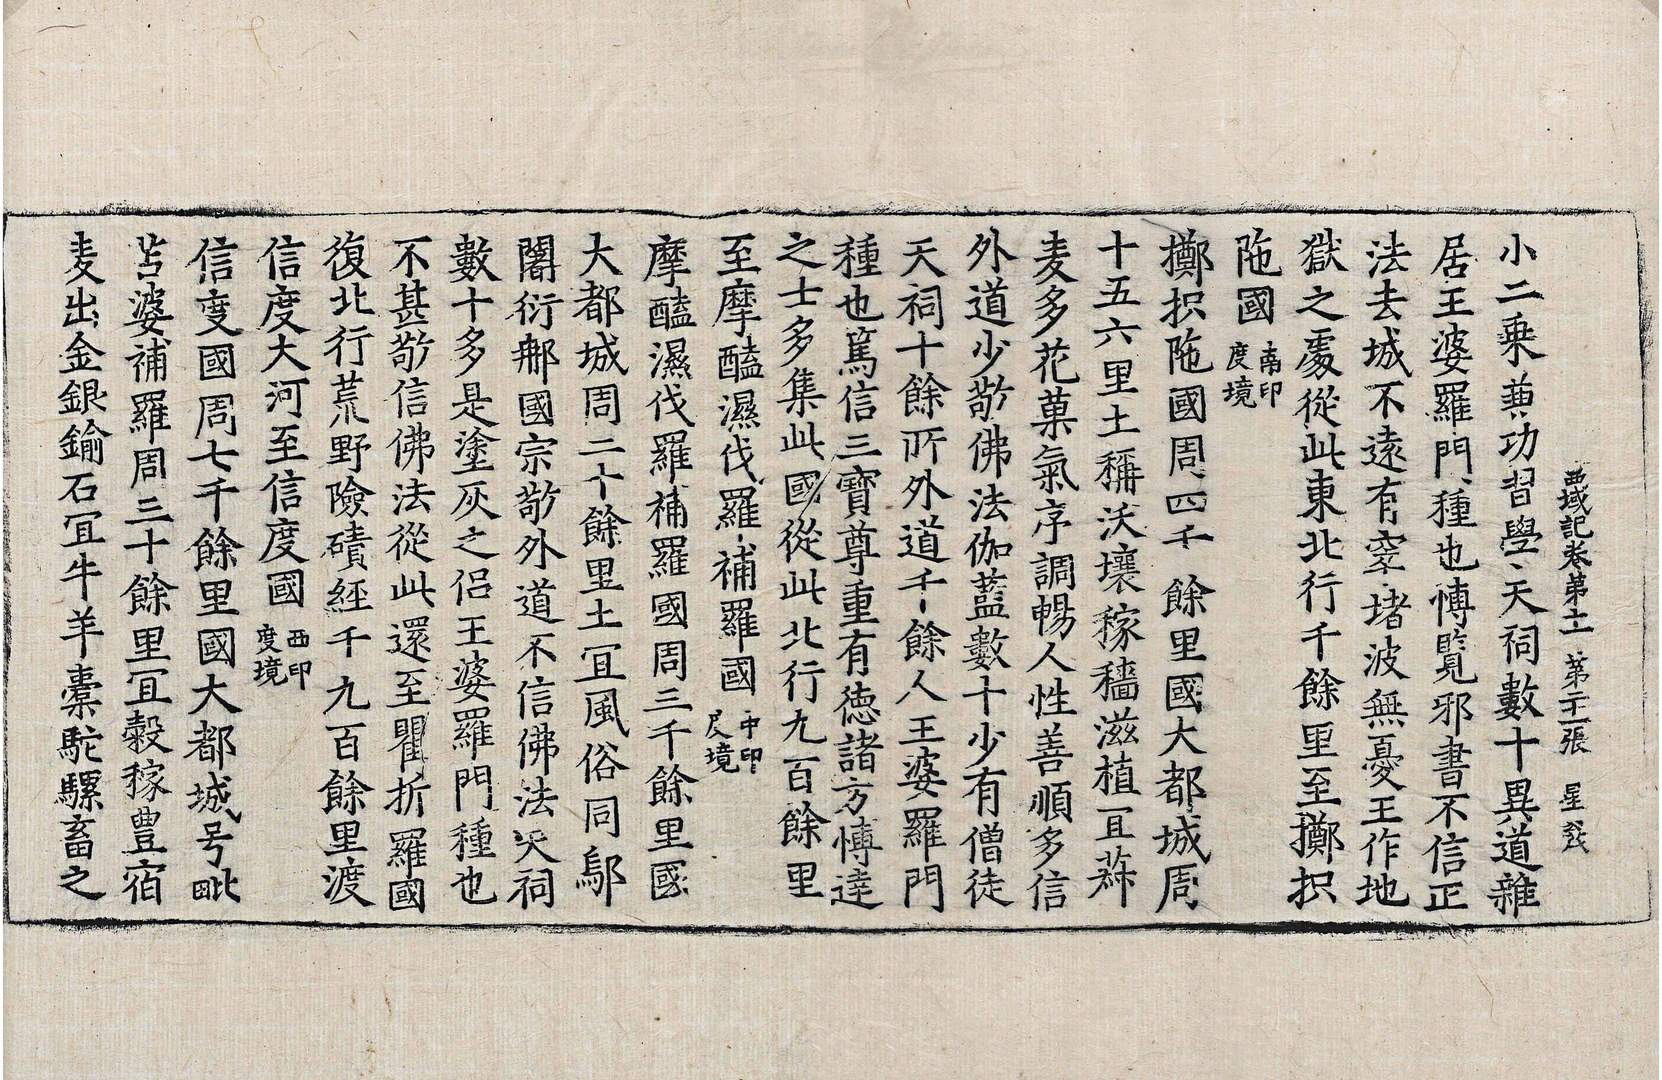 西域記卷第十一 第二十一張 星 發
小二乗兼功習學天祠數十異道雜
居王婆羅門種也愽覧邪書不信正
法去城不遠有窣堵波無憂王作地
獄之處從此東北行千餘里至擲枳
陁國 南印度境
擲枳陁國周四千餘里國大都城周
十五六里土稱沃壤稼穡滋植冝菽
麦多花菓氣序調暢人性善順多信
外道少敬佛法伽藍數十少有僧徒
天祠十餘所外道千餘人王婆羅門
種也篤信三寶尊重有德諸方愽達
之士多集此國從此北行九百餘里
至摩醯濕伐羅補羅國 中印度境
摩醯濕伐羅補羅國周三千餘里國
大都城周二十餘里土冝風俗同鄔
闍衍郍國宗敬外道不信佛法天祠
數十多是塗灰之侣王婆羅門種也
不甚敬信佛法從此還至瞿折羅國
復北行荒野險磧經千九百餘里渡
信度大河至信度國 西印度境
信度國周七千餘里國大都城号毗
苫婆補羅周三十餘里冝穀稼豊宿
麦出金銀鍮石冝牛羊橐駝騾畜之